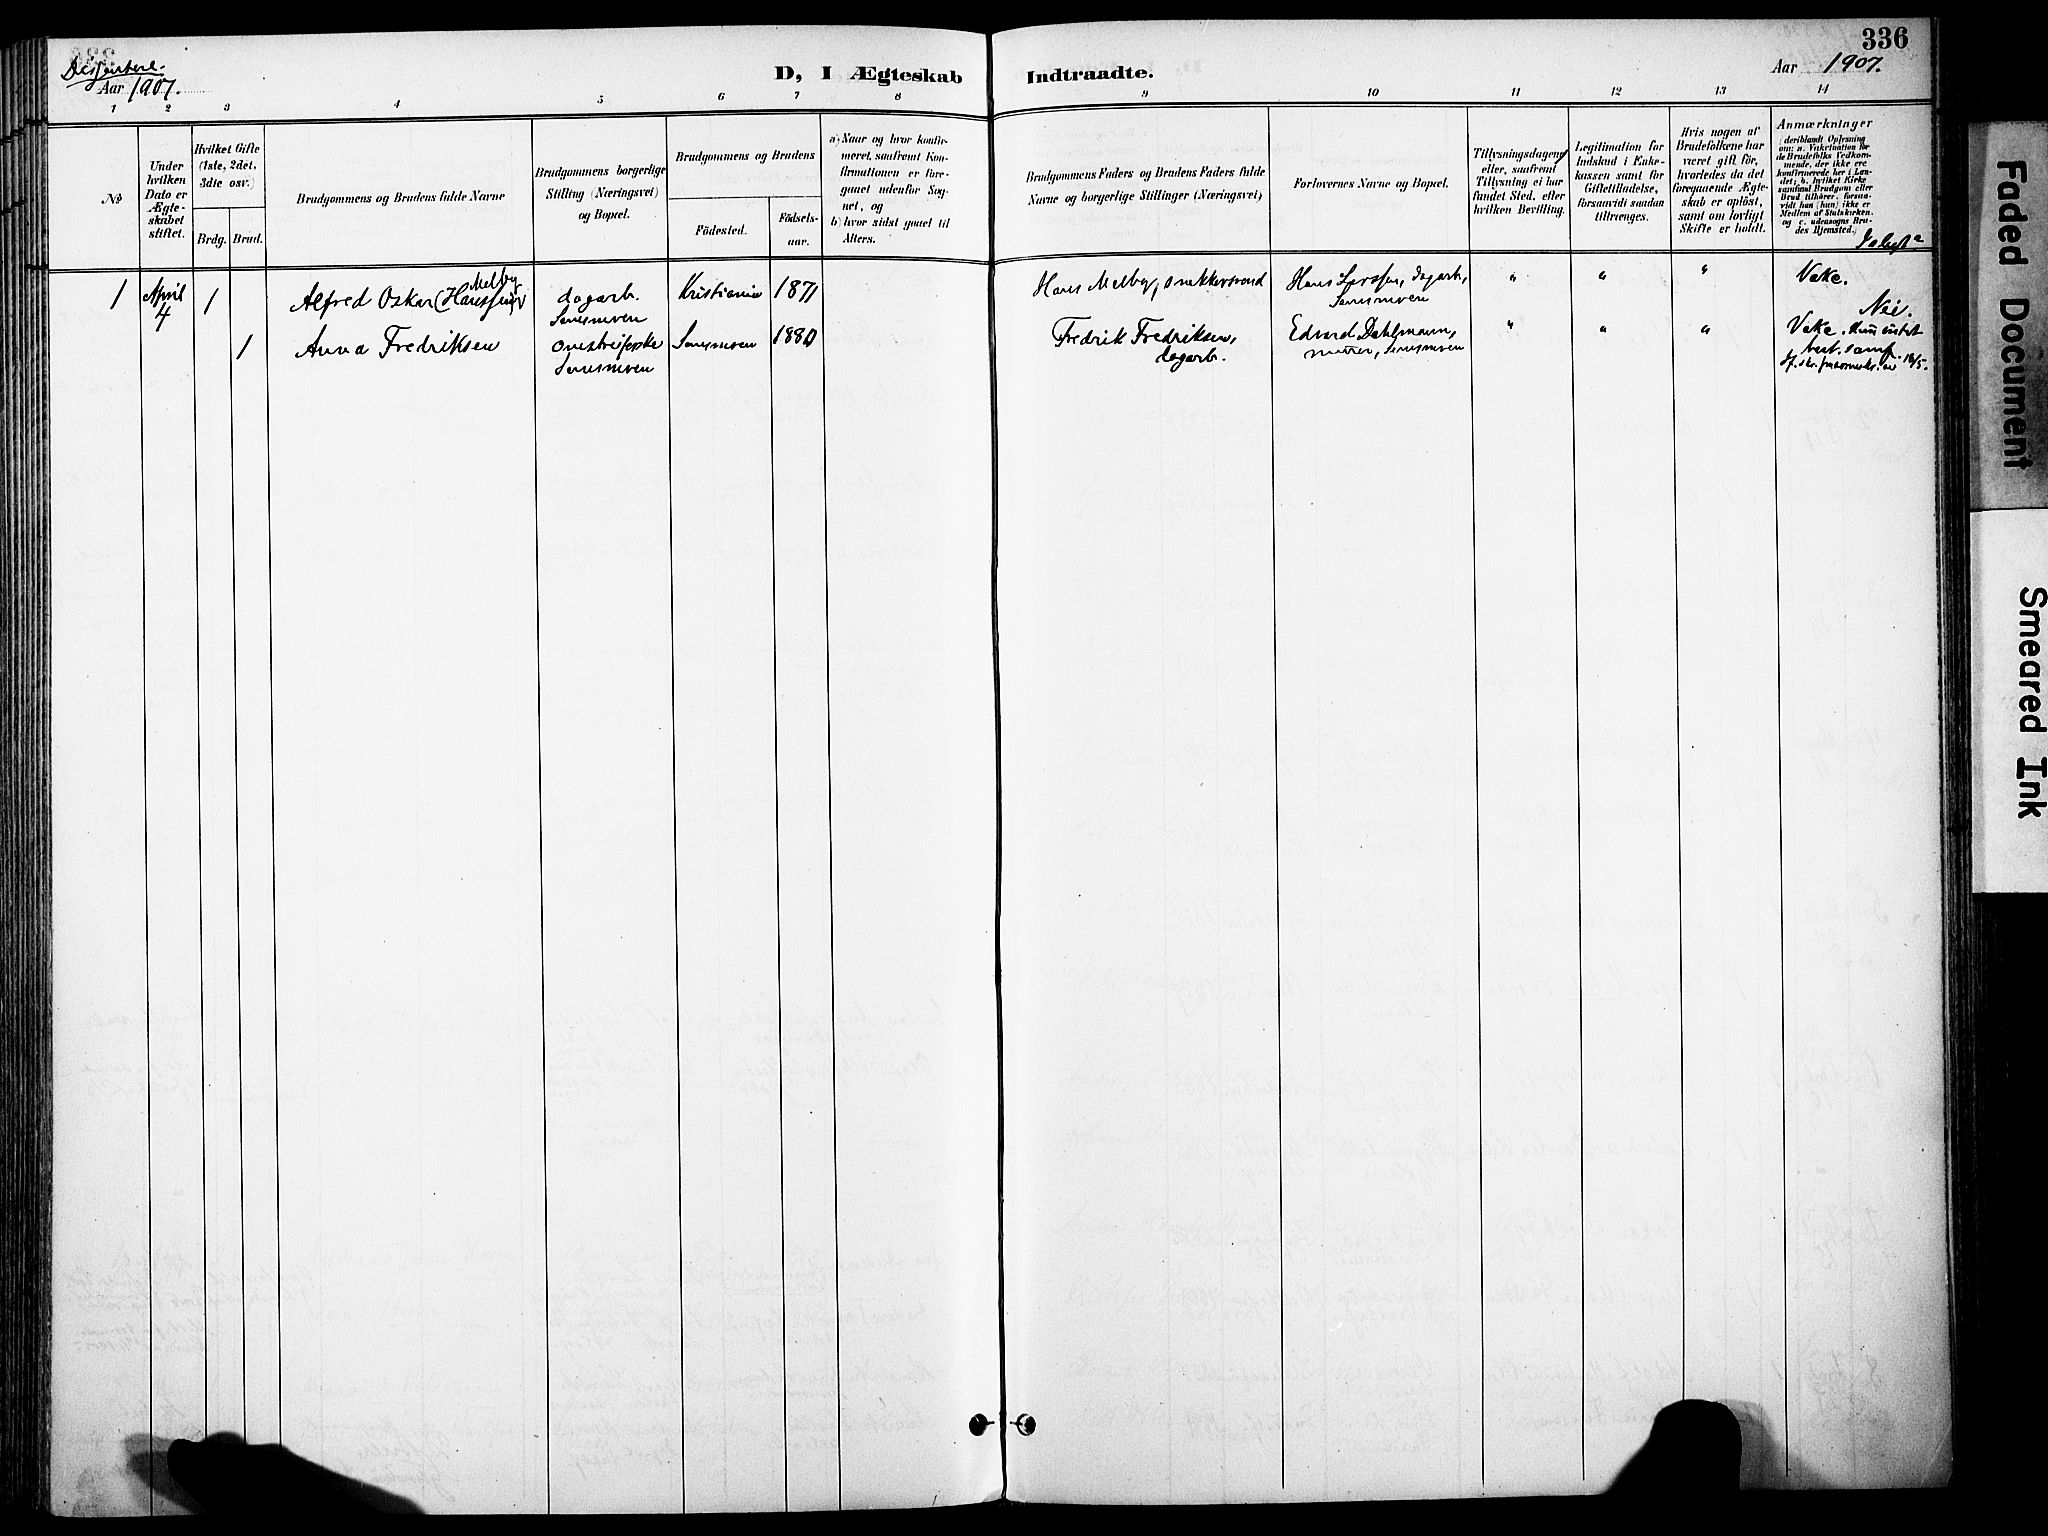 336
Dissentere.
Aar 1907.
D, I Ægteskab Indtraadte.
Aar 1907.
1 2 3 4 5 6 7 8 9 10 11 12 13 14
No
Under
hvilken
Dato er
Ægte-
skabet
stiftet.
Hvilket Gifte
(1ste, 2det,
3die osv.)
Brdg. Brud.
Brudgommens og Brudens fulde Navne
Brudgommens borgerlige
Stilling (Næringsvei)
og Bopæl.
Brudgommens og Brudens
Födested.
Födsels-
aar.
a) Naar og hvor konfir-
meret, saafremt Kon-
firmationen er fore-
gaaet udenfor Sog-
net, og
b) hvor sidst gaaet til
Alters.
Brudgommens Faders og Brudens Faders fulde
Navne og borgerlige Stillinger (Næringsvei)
Forlovernes Navne og Bopæl.
Tillysningsdagene
eller, saafremt
Tillysning ei har
fundet Sted, efter
hvilken Bevilling.
Legitimation for
Indskud i Enke-
kassen samt for
Giftetilladelse,
forsaavidt saadan
tiltrænges.
Hvis nogen af
Brudefolkene har
været gift för,
hvorledes da det
foregaaende Ægte-
skab er oplöst,
samt om lovligt
Skifte er holdt.
Anmærkninger
(deriblandt Oplysning
om: a. Vakcination for
de Brudefolks Vedkom-
mende, der ikke ere
konfirmerede her i Lan-
det; b. hvilket Kirke
samfund Brudgom eller
Brud tilhörer, forsaa-
vidt han (hun) ikke er
Medlem af Statskirken,
og c. udensogns Bru-
des Hjemsted.)
1 April 4 1 Alfred Oskar (Hanssen) Melby dagarb. Kristiania 1871 Hans Melby, snekkersvend " " " Vake.
Nei.
1 Anna Fredriksen 1880 Fredrik Fredriksen, dagarb. Edvard Dahlmann, murer, " " " Vake.